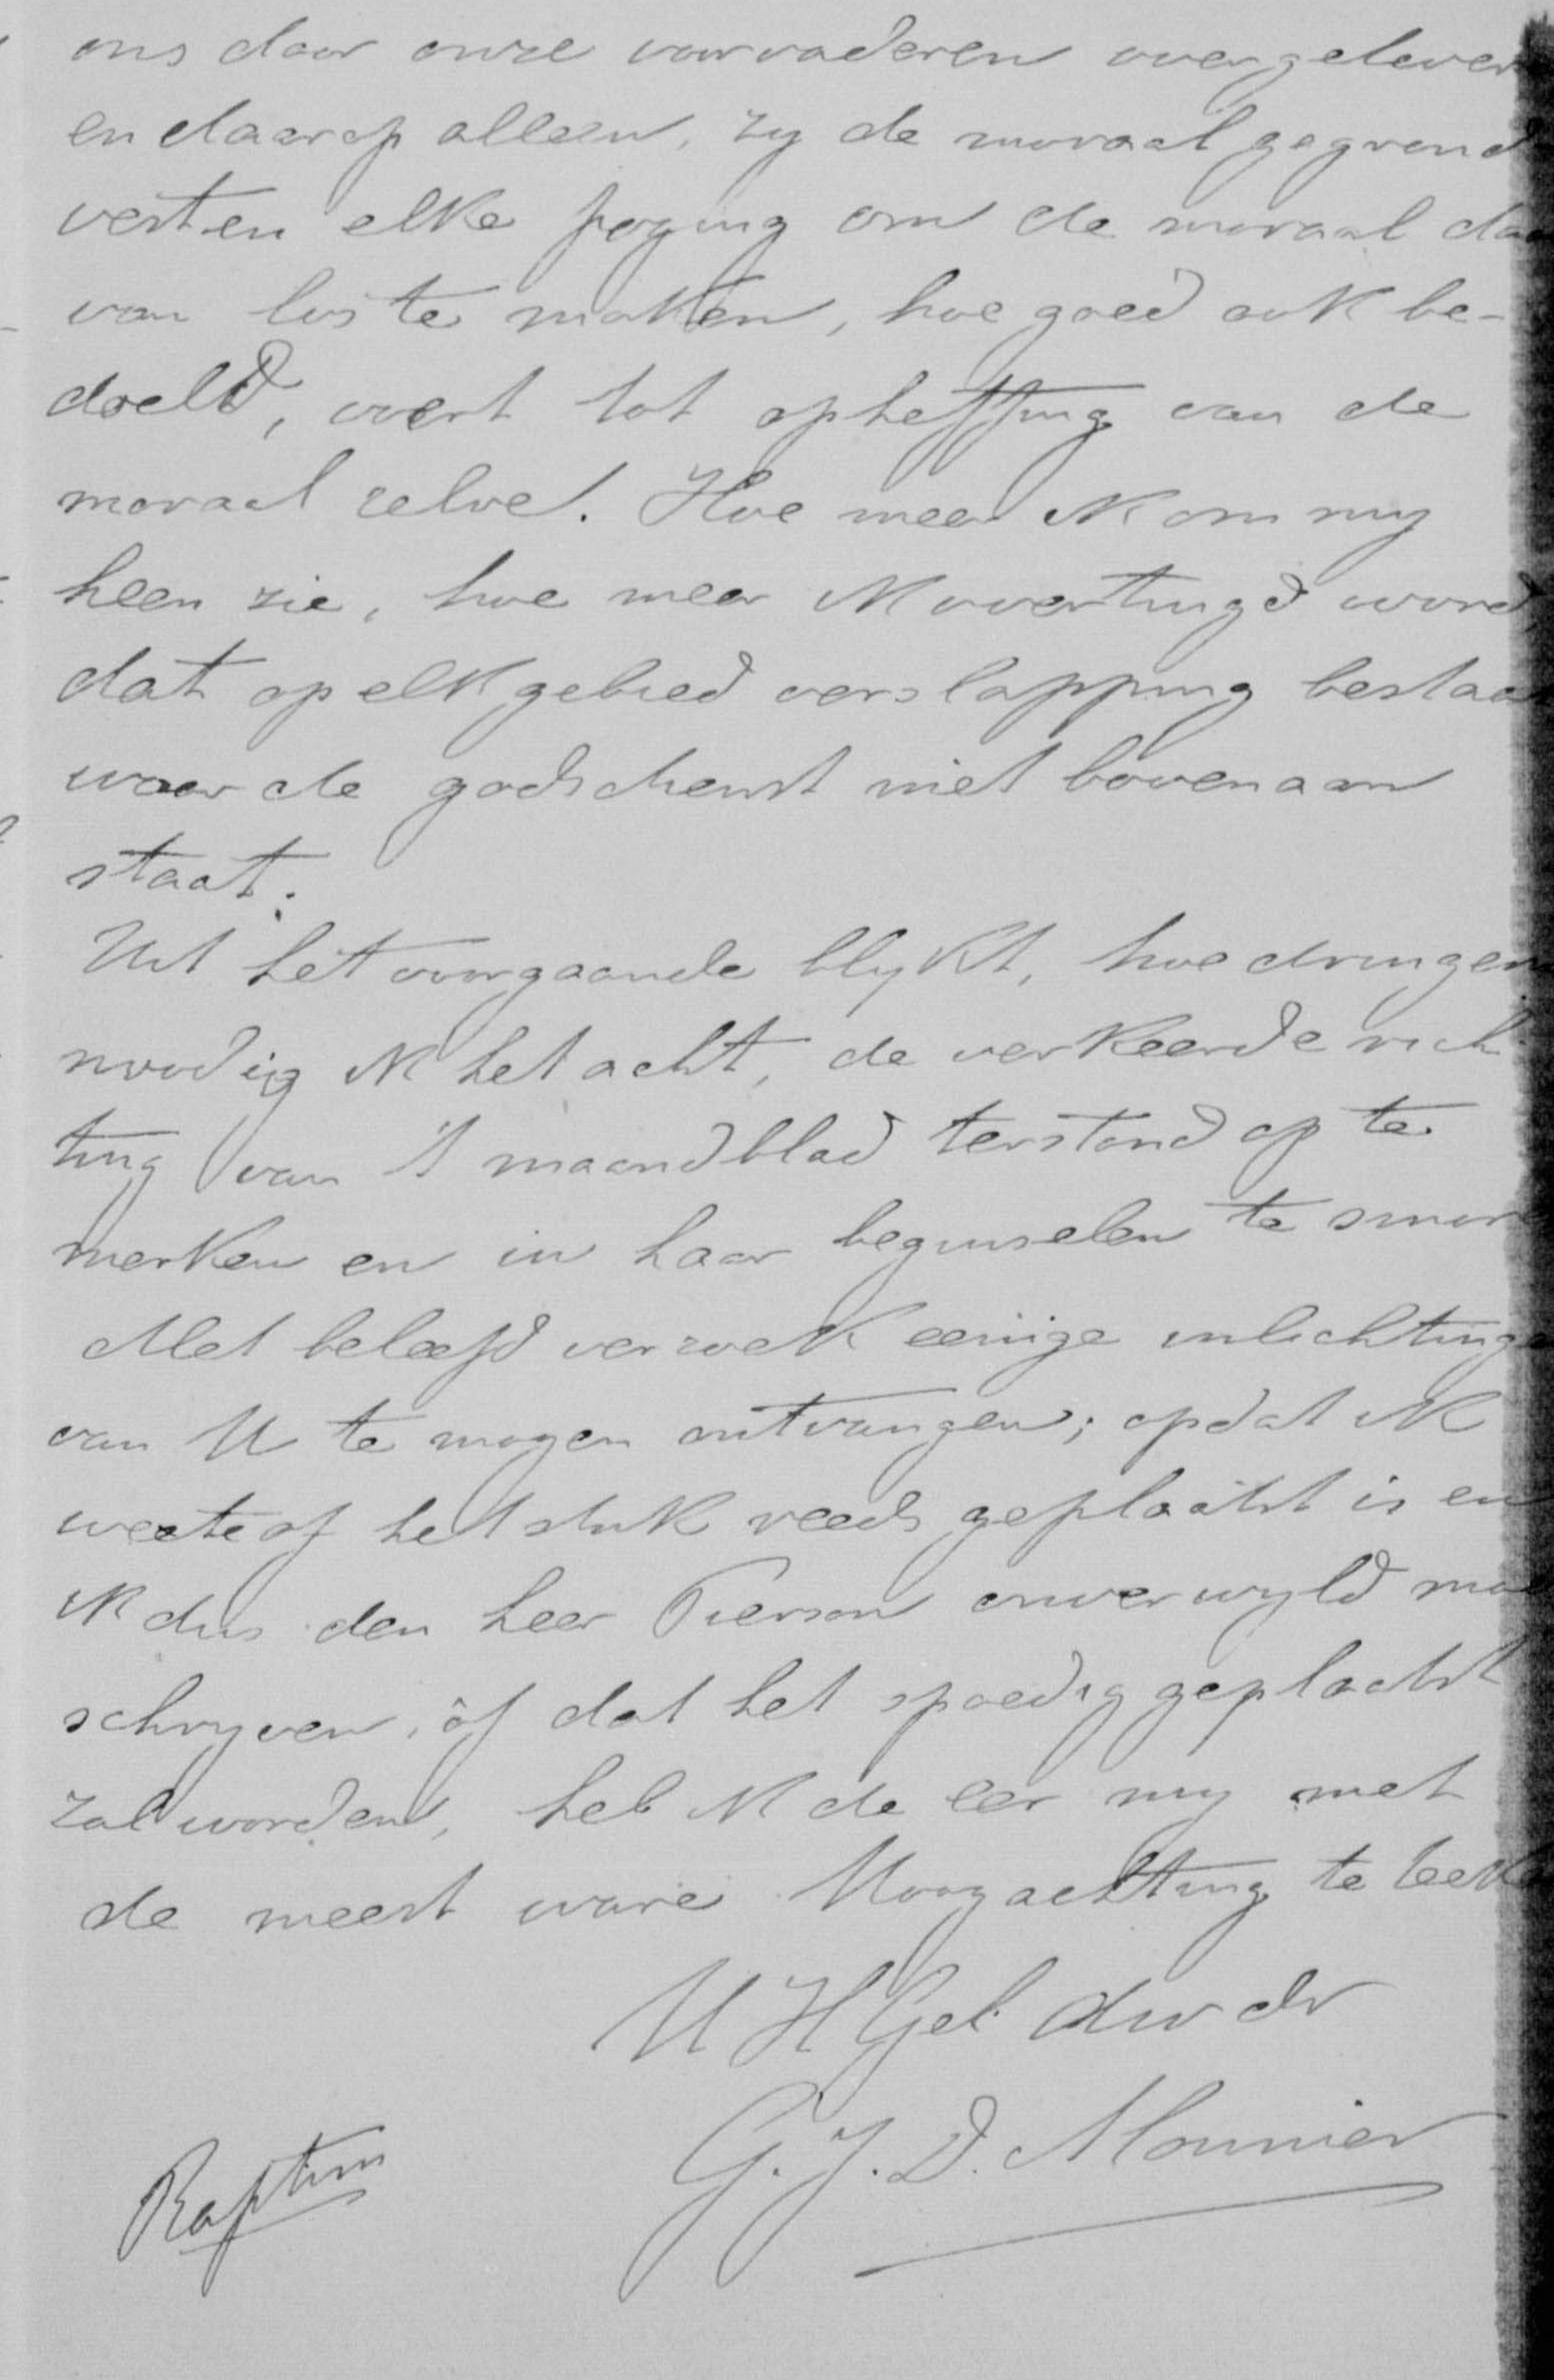 ons door onze voorvaderen overgelever
en daarop alleen, zy de moraal gegrond
vest en elke poging om de moraal daa
van los te maken, hoe goed ook be-
doeld, voert tot opheffing van de
moraal zelve. Hoe meer ik om my
heen zie, hoe meer ik overtuigd word,
dat op elk gebied verslapping bestaa
waar de godsdienst niet bovenaan
staat.
Uit het voorgaande blykt, hoe dringen
noodig ik het acht, de verkeerde rich
ting van 't maandblad terstond op te
merken en in haar beginselen te smore
Met beleefd verzoek eenige inlichtinge
van U te mogen ontvangen; opdat ik
weete of het stuk reeds geplaatst is en
ik dus den heer Pierson onverwyld moe
schryven, óf dat het spoedig geplaatst
zal worden, heb ik de eer my met
de meest ware Hoogachting te teeke
U H Gel. dw dr
G. J. D. Mounier
Raptim